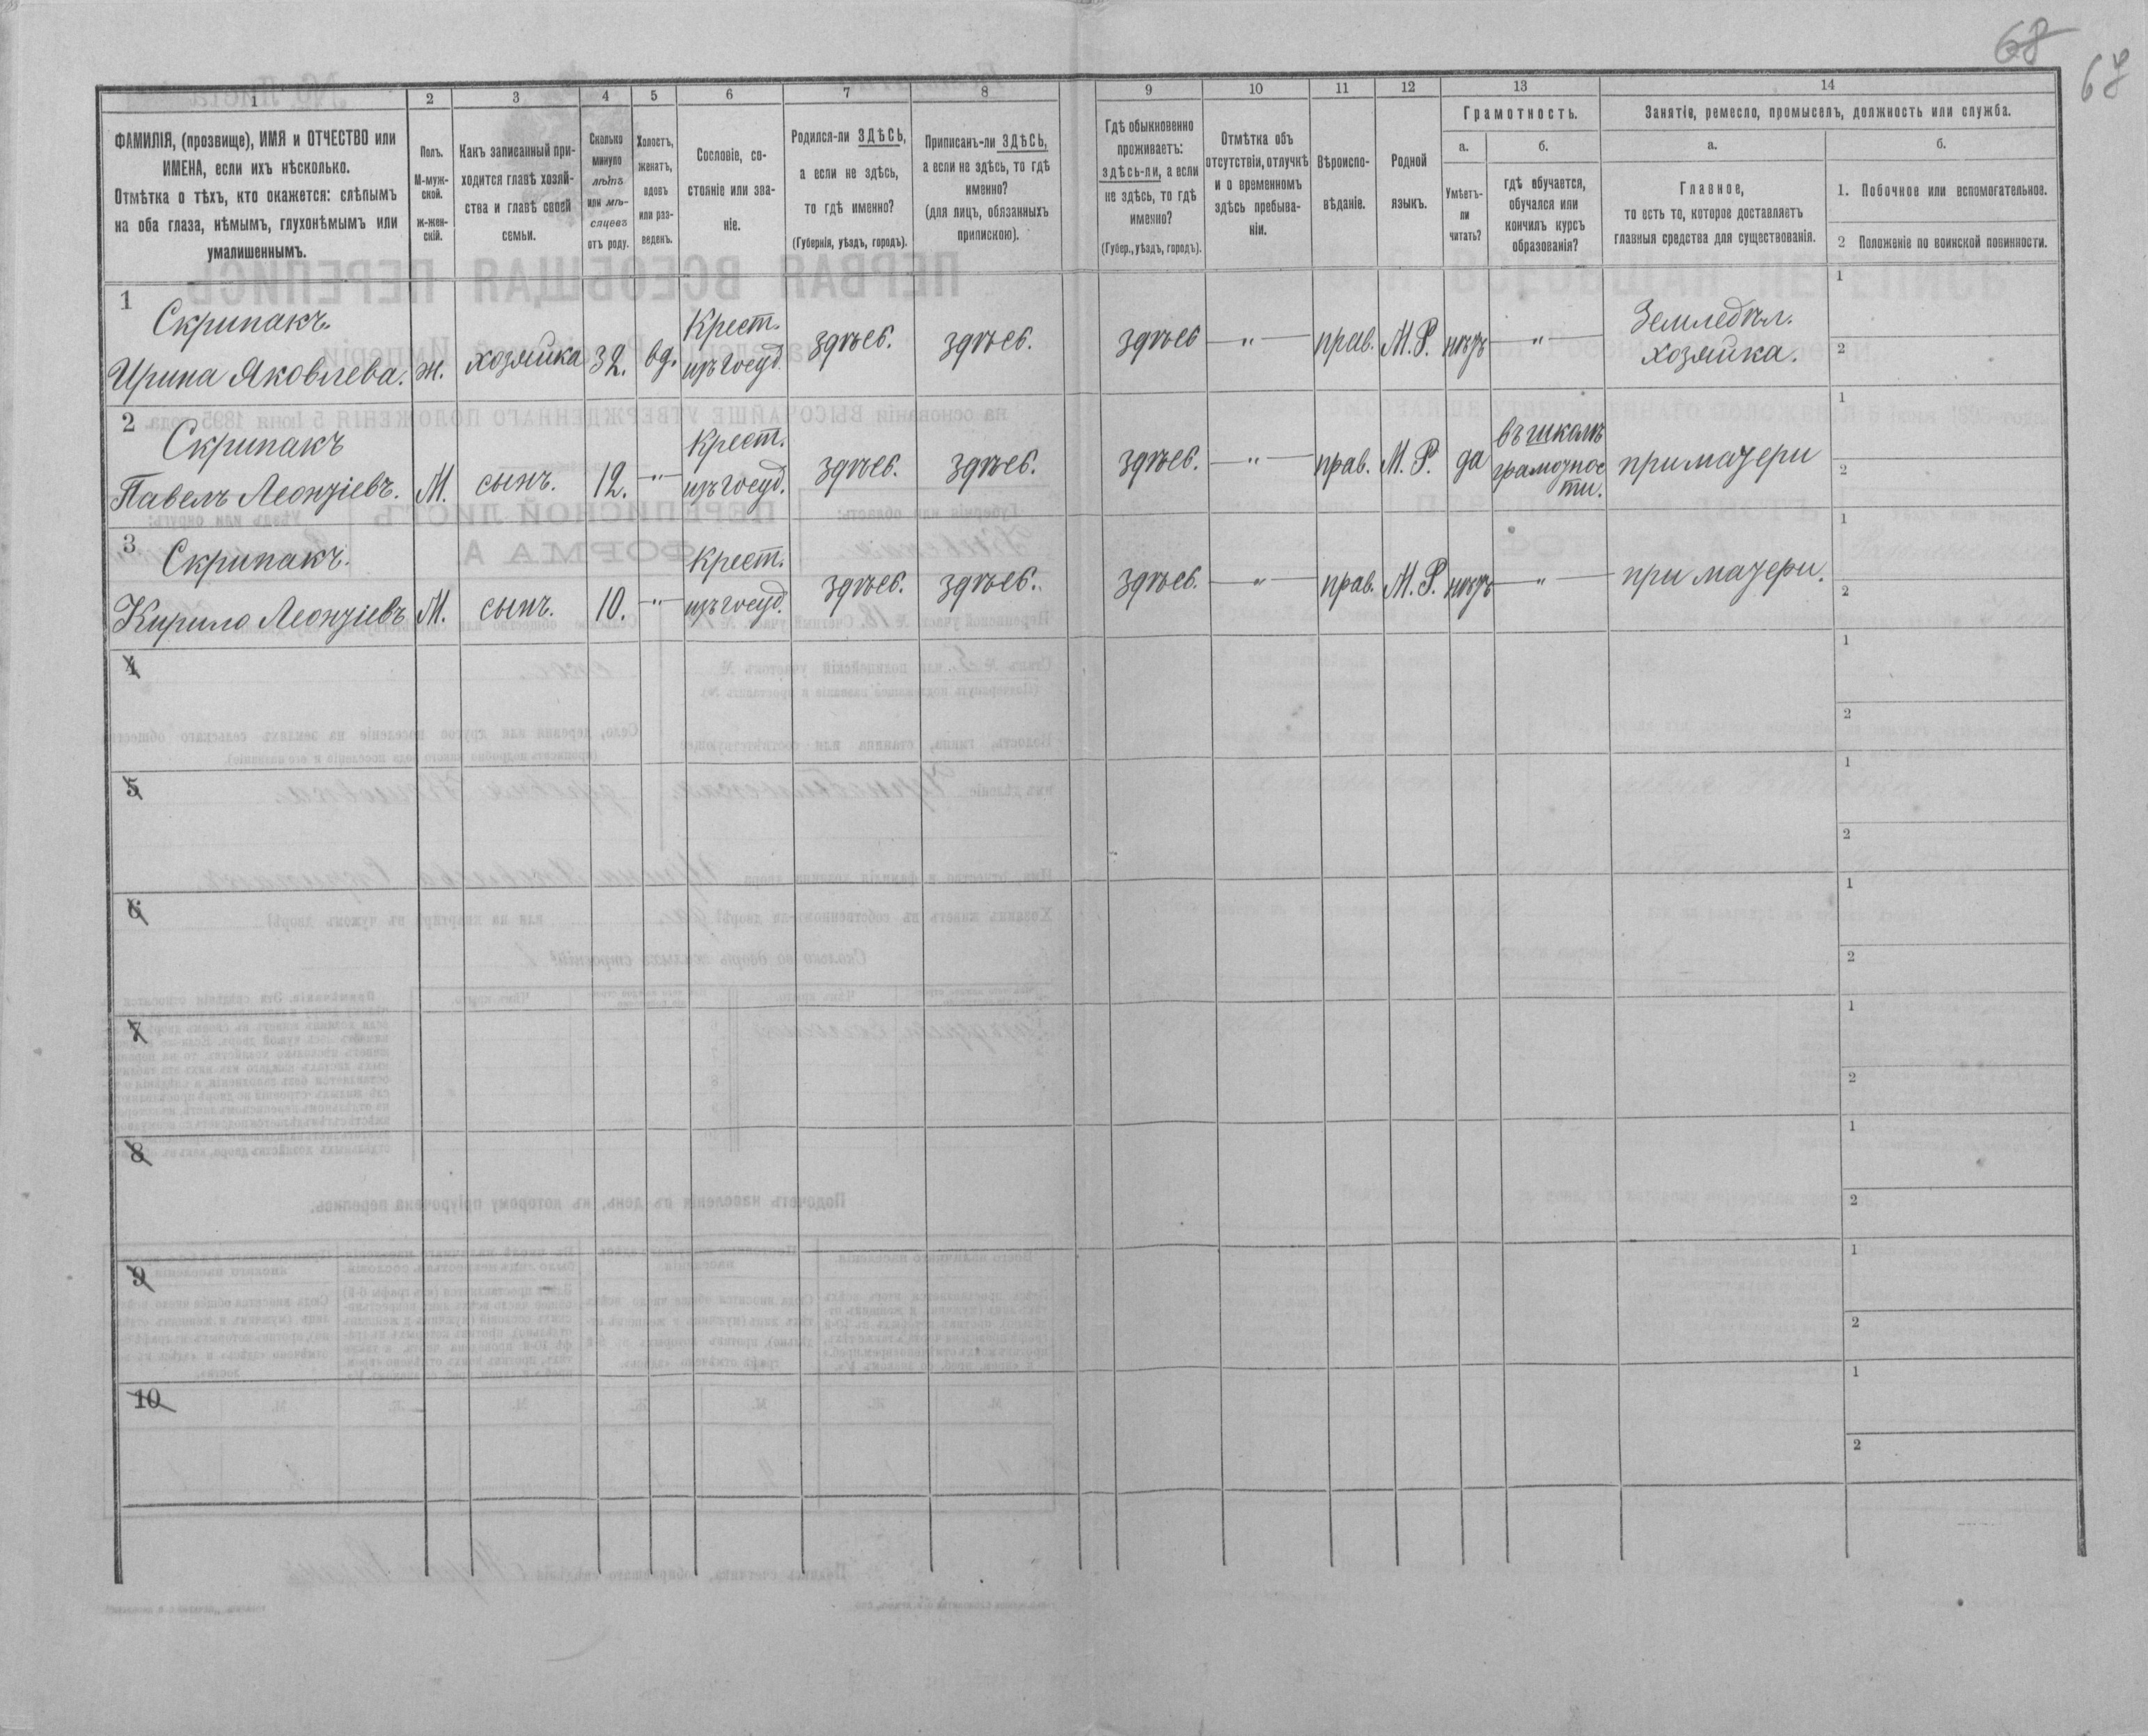 68
68
1 2 3 4 5 6 7 8 9 10 11 12 13 14
ФАМИЛІЯ, (прозвище), ИМЯ и ОТЧЕСТВО или
ИМЕНА, если ихъ нѣсколько.
Отмѣтка о тѣхъ, кто окажется: слѣпымъ
на оба глаза, нѣмымъ, глухонѣмымъ или
умалишеннымъ.
Полъ.
М-муж-
ской.
ж-жен-
скій.
Какъ записанный при-
ходится главѣ хозяй-
ства и главѣ своей
семьи.
Сколько
минуло
лѣтъ
или мѣ-
сяцевъ
отъ роду.
Холостъ,
женатъ,
вдовъ
или раз-
веденъ.
Сословіе, со-
стояніе или зва-
ніе.
Родился-ли ЗДѢСЬ,
а если не здѣсь,
то гдѣ именно?
(Губернія, уѣздъ, городъ).
Приписанъ-ли ЗДѢСЬ,
а если не здѣсь, то гдѣ
именно?
(для лицъ, обязанныхъ
припискою).
Гдѣ обыкновенно
проживаетъ:
здѣсь-ли, а если
не здѣсь, то гдѣ
именно?
(Губер., уѣздъ, городъ).
Отмѣтка объ
отсутствіи, отлучкѣ
и о временномъ
здѣсь пребыва-
ніи.
Вѣроиспо-
вѣданіе.
Родной
языкъ.
Грамотность.
а.
Умѣетъ-
ли
читать?
б.
гдѣ обучается,
обучался или
кончилъ курсъ
образованія?
Занятіе, ремесло, промыселъ, должность или служба.
а.
Главное,
то есть то, которое доставляетъ
главныя средства для существованія.
б.
1. Побочное или вспомогательное.
2 Положеніе по воинской повинности.
1
Скрипакъ.
Ирина Яковлева.
ж.
хозяйка
32.
вд.
Крест.
изъ госуд.
здѣсь.
здѣсь.
здѣсь
— " —
прав.
М. Р.
нѣтъ
— " —
Земледѣл.
хозяйка.
1
2
2
Скрипакъ
Павелъ Леонтіевъ.
М.
сынъ.
12.
— " —
Крест.
изъ госуд.
здѣсь.
здѣсь.
здѣсь.
— " —
прав.
М. Р.
да
въ школѣ
грамотнос
ти.
при матери
1
2
3
Скрипакъ.
Кирило Леонтіевъ
М.
сынъ.
10.
— " —
Крест.
изъ госуд.
здѣсь.
здѣсь.
здѣсь.
— " —
прав.
М. Р.
нѣтъ
— " —
при матери.
1
2
4
1
2
5
1
2
6
1
2
7
1
2
8
1
2
9
1
2
10
1
2